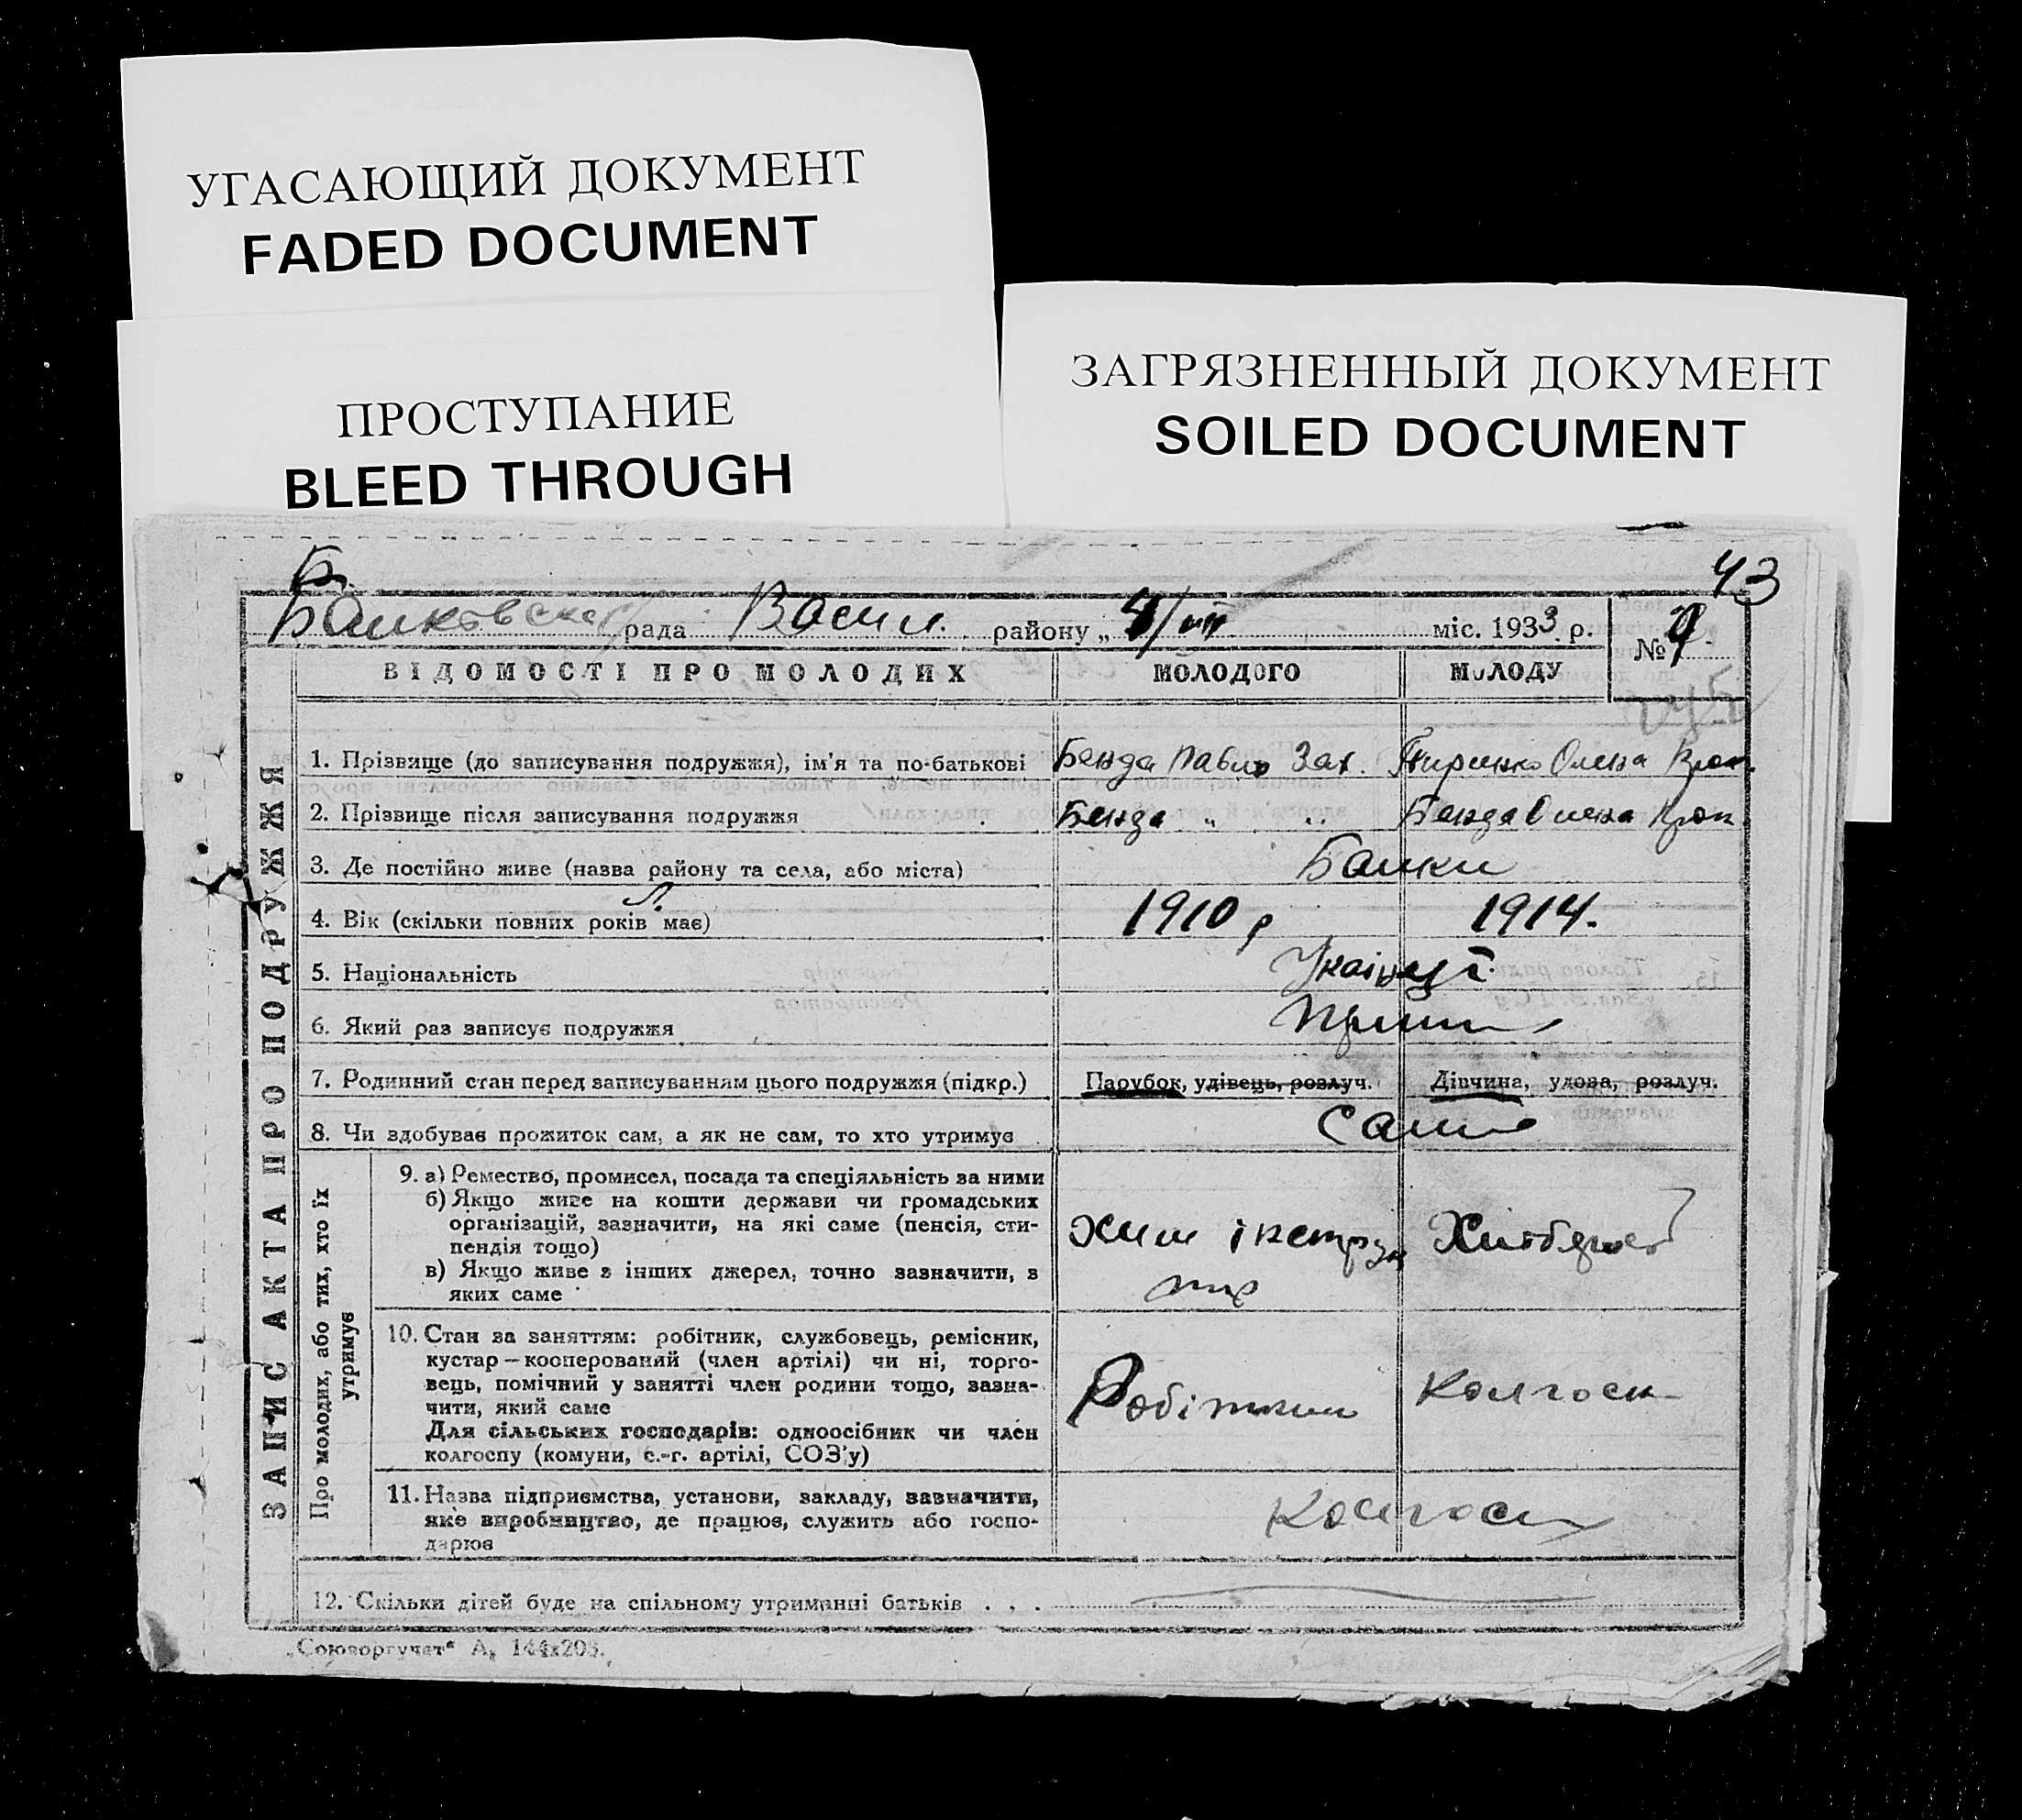 УГАСАЮЩИЙ ДОКУМЕНТ
FADED DOCUMENT
ПРОСТУПАНИЕ
BLEED THROUGH
ЗАГРЯЗНЕННЫЙ ДОКУМЕНТ
SOILED DOCUMENT
43
рада Васил. району „ /VII міс. 1933 р.
№
ВІДОМОСТІ ПРО МОЛОДИХ МОЛОДОГО МОЛОДУ
ЗАПИС АКТА ПРО ПОДРУЖЖЯ
1. Прізвище (до записування подружжя), ім'я та по-батькові Бенда Павло Зах. Олена
2. Прізвище після записування подружжя Бенда „ „ Бенда Олена
3. Де постійно живе (назва району та села, або міста) Башки
4. Вік (скільки повних років має) 1910 р 1914.
5. Національність
6. Який раз записує подружжя
7. Родинний стан перед записуванням цього подружжя (підкр.) Парубок, удівець, розлуч. Дівчина, удова, розлуч.
8. Чи здобуває прожиток сам, а як не сам, то хто утримує Сами
Про молодих, або тих, хто їх утримує
9. а) Ремество, промисел, посада та спеціяльність за ними
б) Якщо живе на кошти держави чи громадських
організацій, зазначити, на які саме (пенсія, сти-
пендія тощо)
в) Якщо живе з інших джерел, точно зазначити, з
яких саме
10. Стан за заняттям: робітник, службовець, ремісник,
кустар—кооперований (член артілі) чи ні, торго-
вець, помічний у занятті член родини тощо, зазна-
чити, який саме
Для сільських господарів: одноосібник чи член
колгоспу (комуни, с.-г. артілі, СОЗ'у)
Робітник Колгосп
11. Назва підприємства, установи, закладу, зазначити,
яке виробництво, де працює, служить або госпо-
дарює
Колгосп
12. Скільки дітей буде на спільному утриманні батьків . . .
„Союзоргучет“ А, 144x203.